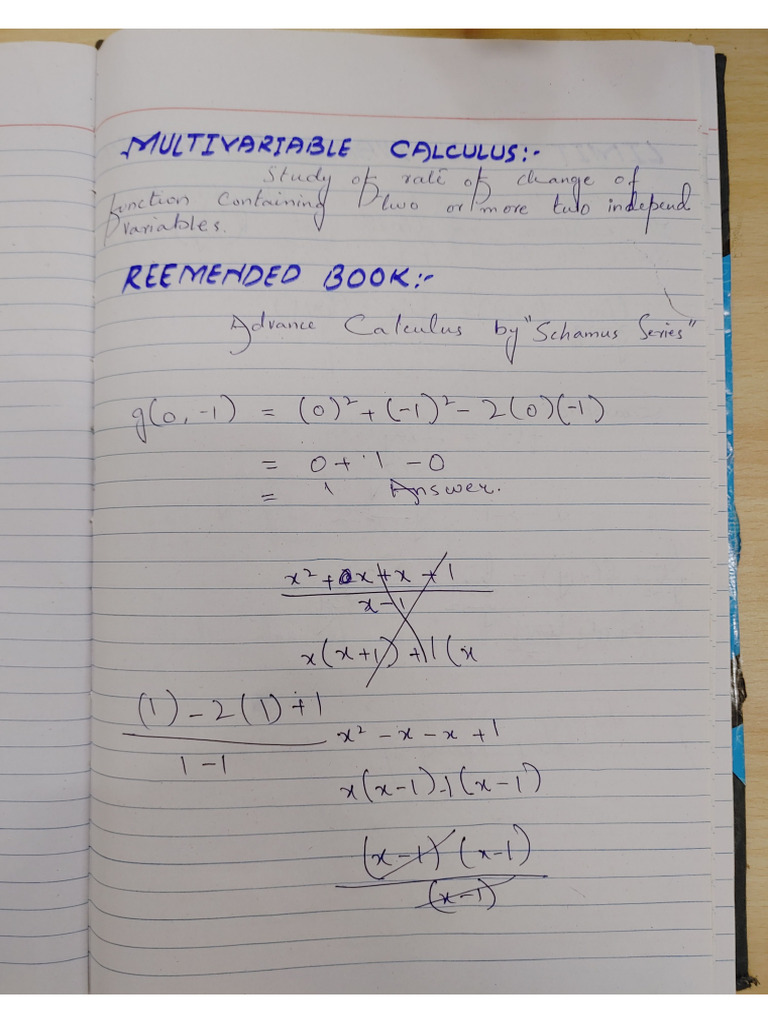 MULTIVARIABLE CALCULUS:-
Study of rate of change of
function containing two or more two independ
variables.
REEMENDED BOOK:-
Advance Calculus by "Schamus Series"
g(0, -1) = (0)² + (-1)² - 2(0)(-1)
= 0 + 1 - 0
= 1 Answer.
x² + 0x + x + 1
x - 1
x(x+1) + 1(x
(1) - 2(1) + 1
1 - 1
x² - x - x + 1
x(x-1) - 1(x-1)
(x-1) (x-1)
(x-1)